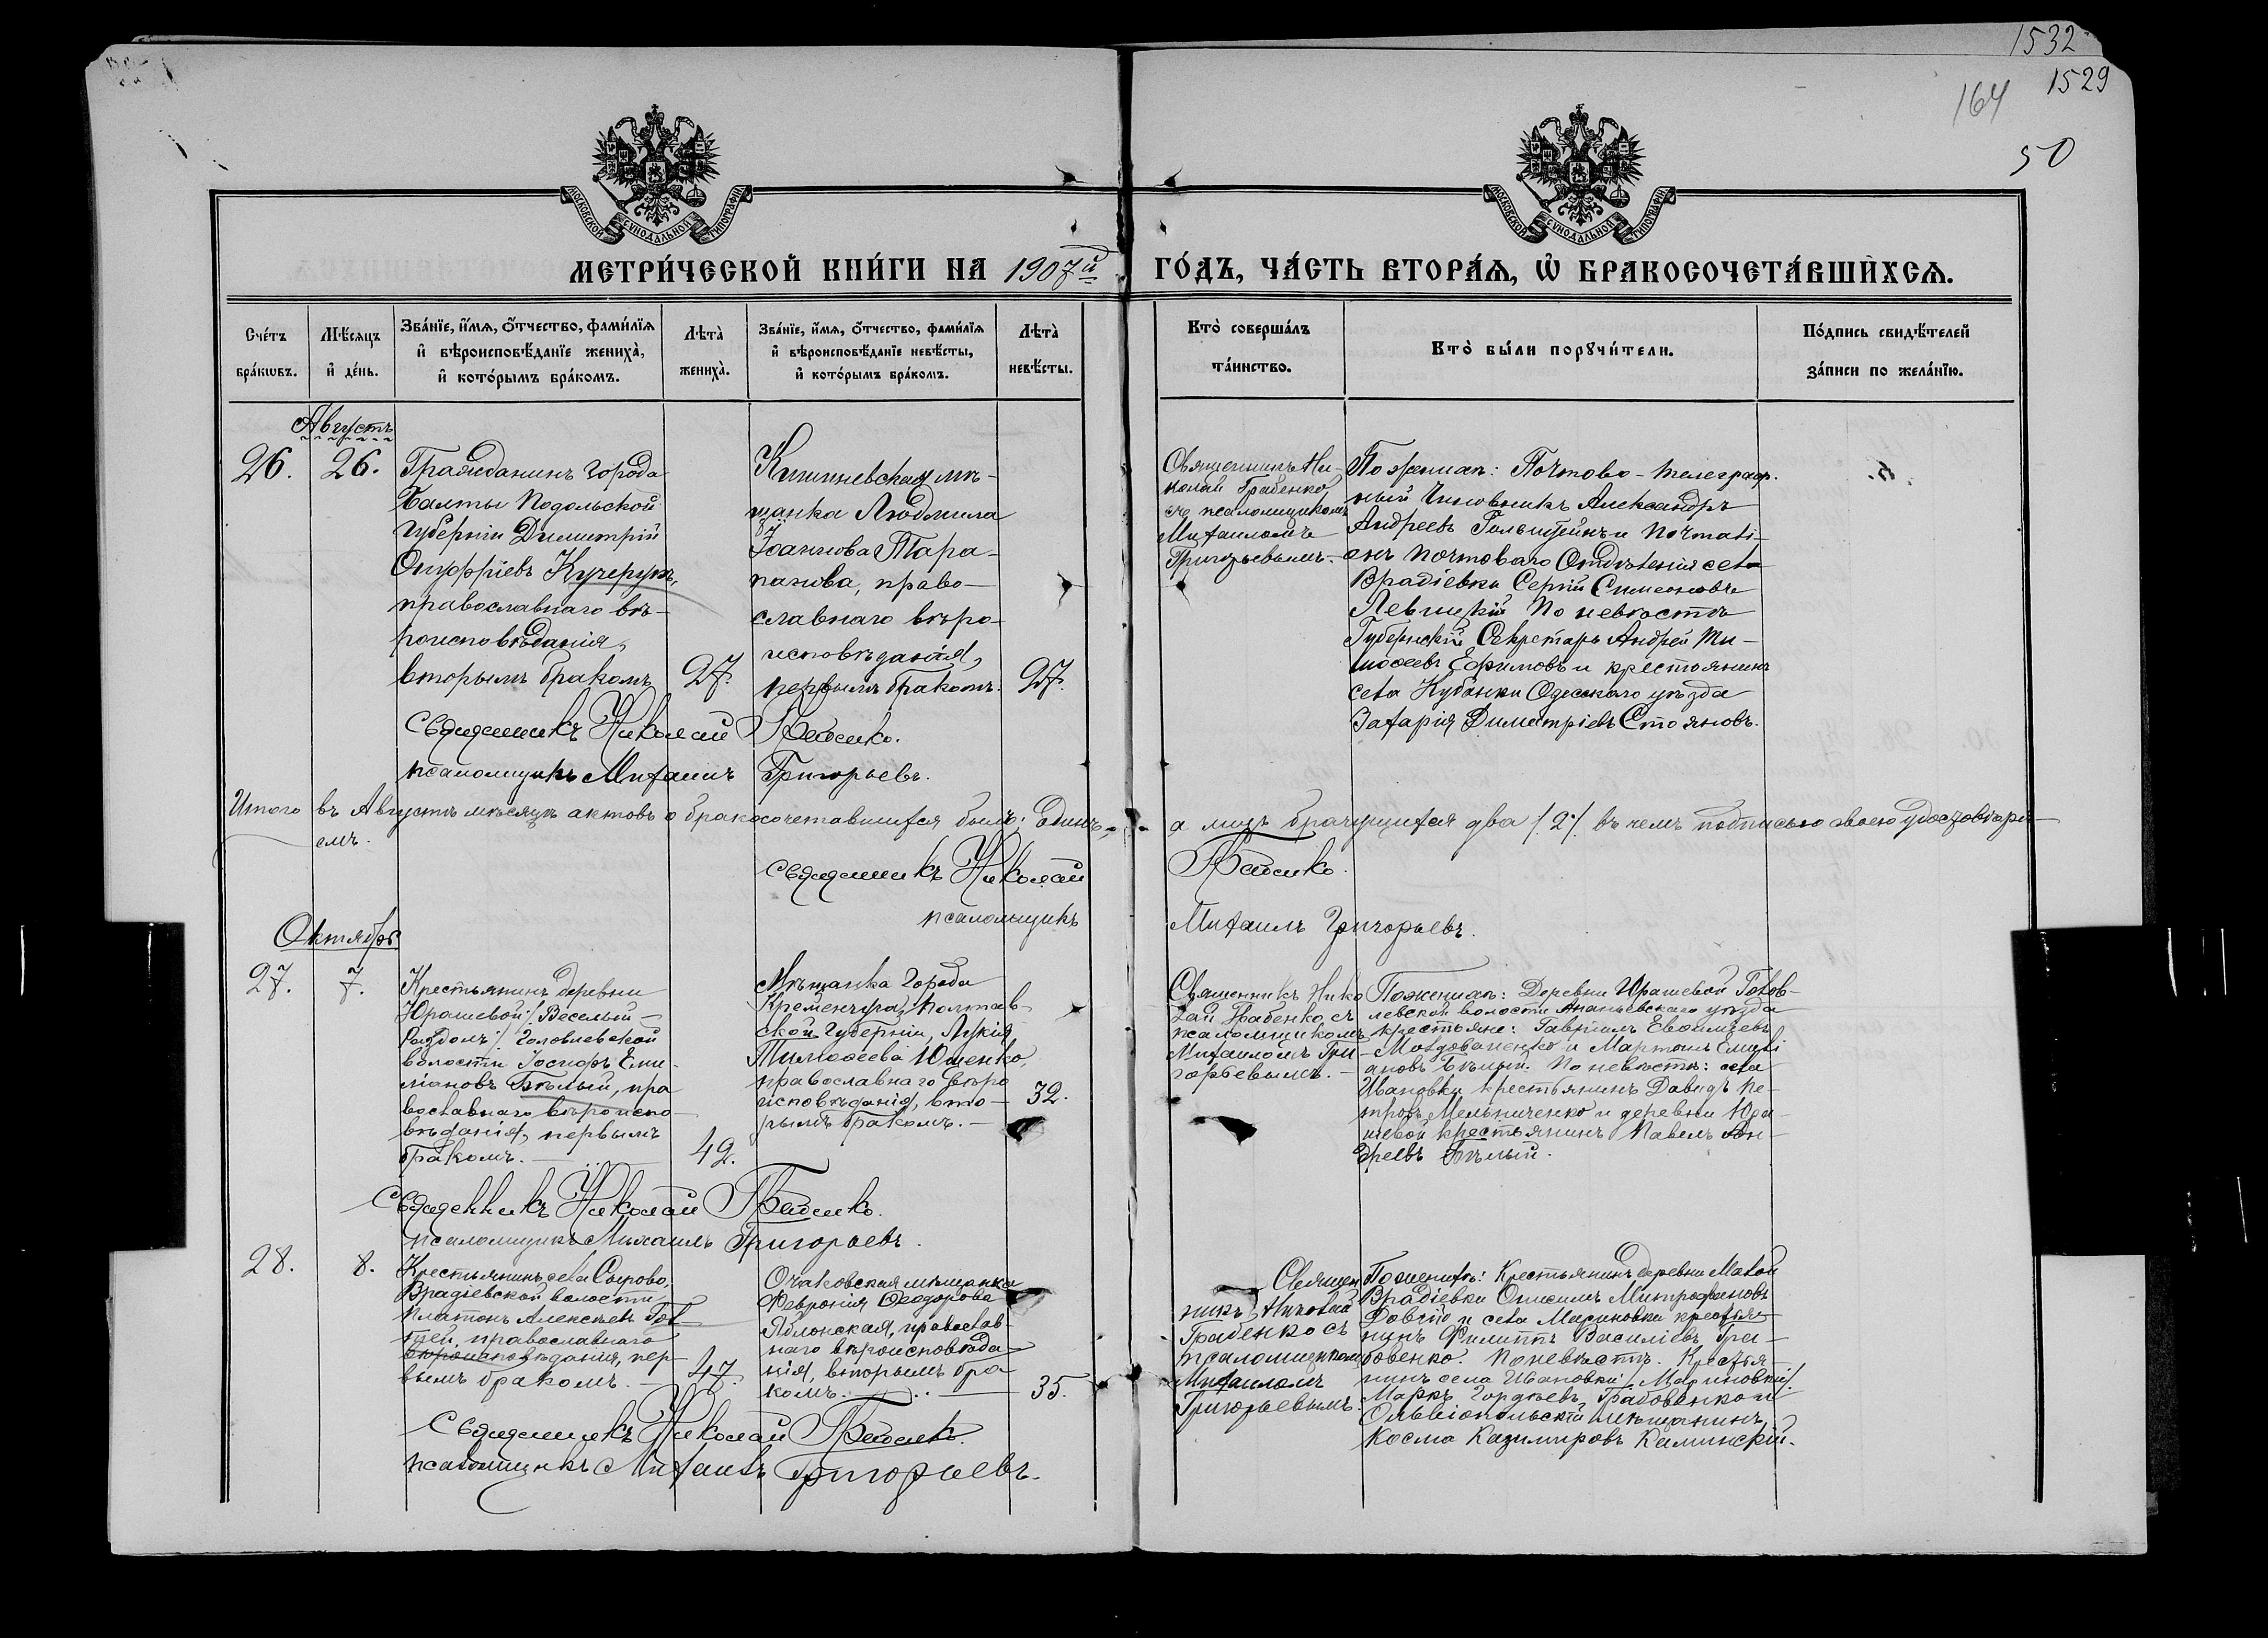 1532
1529
164
50
МОСКОВСКОЙ СѴНОДАЛЬНОЙ ТИПОГРАФІИ
МОСКОВСКОЙ СѴНОДАЛЬНОЙ ТИПОГРАФІИ
МЕТРИ́ЧЕСКОЙ КНИ́ГИ НА 1907й ГО́ДЪ, ЧА́СТЬ ВТОРА́Ѧ, Ѡ БРАКОСОЧЕТА́ВШИХСѦ.
Сче́тъ бра́кѡвъ.
Мѣ́сяцъ и де́нь.
Зва́нїе, и́мя, о́тчество, фами́лїя и вѣроисповѣ́данїе жениха̀, и кото́рымъ бра́комъ.
Лѣта̀ жениха̀.
Зва́нїе, и́мя, о́тчество, фами́лїя и вѣроисповѣ́данїе невѣ́сты, и кото́рымъ бра́комъ.
Лѣта̀ невѣ́сты.
Кто̀ соверша́лъ та́инство.
Кто̀ бы́ли порꙋчи́тели.
По́дпись свидѣ́телей за́писи по жела́нїю.
Августъ
26.
26.
Гражданинъ города
Балты Подольской
губерніи Димитрій
Онуфріевъ Кучерукъ,
православнаго вѣ-
роисповѣданія,
вторымъ бракомъ
27.
Кишиневская мѣ-
щанка Людмила
Іоаннова Тара-
панова, право-
славнаго вѣро-
исповѣданія,
первымъ бракомъ.
27.
Священникъ Ни-
колай Грабенко
съ псаломщикомъ
Михаиломъ
Григорьевымъ.
По женихѣ: Почтово-телеграф-
ный Чиновникъ Александръ
Андреевъ и почталі-
онъ почтоваго Отдѣленія села
Врадіевки Сергій Симеоновъ
Левицкій По невѣстѣ
Губернскій Секретарь Андрей Ти-
моѳеевъ Ефимовъ и крестьянинъ
села Кубанки Одесскаго уѣзда
Захарія Димитріевъ Стояновъ.
Священникъ Николай Грабенко.
псаломщикъ Михаилъ Григорьевъ.
Итого въ Августѣ мѣсяцѣ актовъ о бракосочетавшихся былъ: одинъ, а лицъ брачущихся два /2/. въ чемъ подписью своею удостовѣря-
емъ.
Священникъ Николай Грабенко.
псаломщикъ Михаилъ Григорьевъ.
Октябрь
27.
7.
Крестьянинъ деревни
Юрашевой /Веселый-
Раздолъ/. Головлевской
волости Іосифъ Еми-
ліановъ Бѣлый, пра
вославнаго вѣроиспо-
вѣданія, первымъ
бракомъ.
42.
Мѣщанка города
Кременчуга, Полтав-
ской губерніи, Лукія
Тимоѳеева Ющенко,
православнаго вѣро
исповѣданія, вто-
рымъ бракомъ.
32.
Священникъ Нико
лай Грабенко съ
псаломщикомъ
Михаиломъ Гри-
горьевымъ.
По женихѣ: Деревни Юрашевой Голов-
левской волости Ананьевскаго уѣзда
крестьяне: Гавріилъ
Молдованенко и Мартинъ Емилі
ановъ Бѣлый. По невѣстѣ: села
Ивановки крестьянинъ Давидъ Пе-
тровъ Мельниченко и деревни Юра-
шевой крестьянинъ Павелъ Ан-
дреевъ Бѣлый.
Священникъ Николай Грабенко.
псаломщикъ Михаилъ Григорьевъ.
28.
8.
Крестьянинъ села Сырово,
Врадіевской волости
Платонъ Алексѣевъ
православнаго
вѣроисповѣданія, пер-
вымъ бракомъ.
47.
Очаковская мѣщанка
Февронія Ѳеодорова
Яблонская, православ-
наго вѣроисповѣда-
нія, вторымъ бра
комъ.
35.
Священ
никъ Николай
Грабенко съ
псаломщикомъ
Михаиломъ
Григорьевымъ.
По женихѣ: Крестьянинъ деревни Малой
Врадіевки Онисимъ Митрофановъ
Довгій и села Мариновки крестья-
нинъ Филиппъ Василіевъ Гра-
бовенко. По невѣстѣ. Крестья-
нинъ села Ивановки /Мариновки/.
Маркъ Гордѣевъ Грабовенко и
Ольвіопольскій мѣщанинъ
Косма Казимировъ Каминскій.
Священникъ Николай Грабенко.
псаломщикъ Михаилъ Григорьевъ.